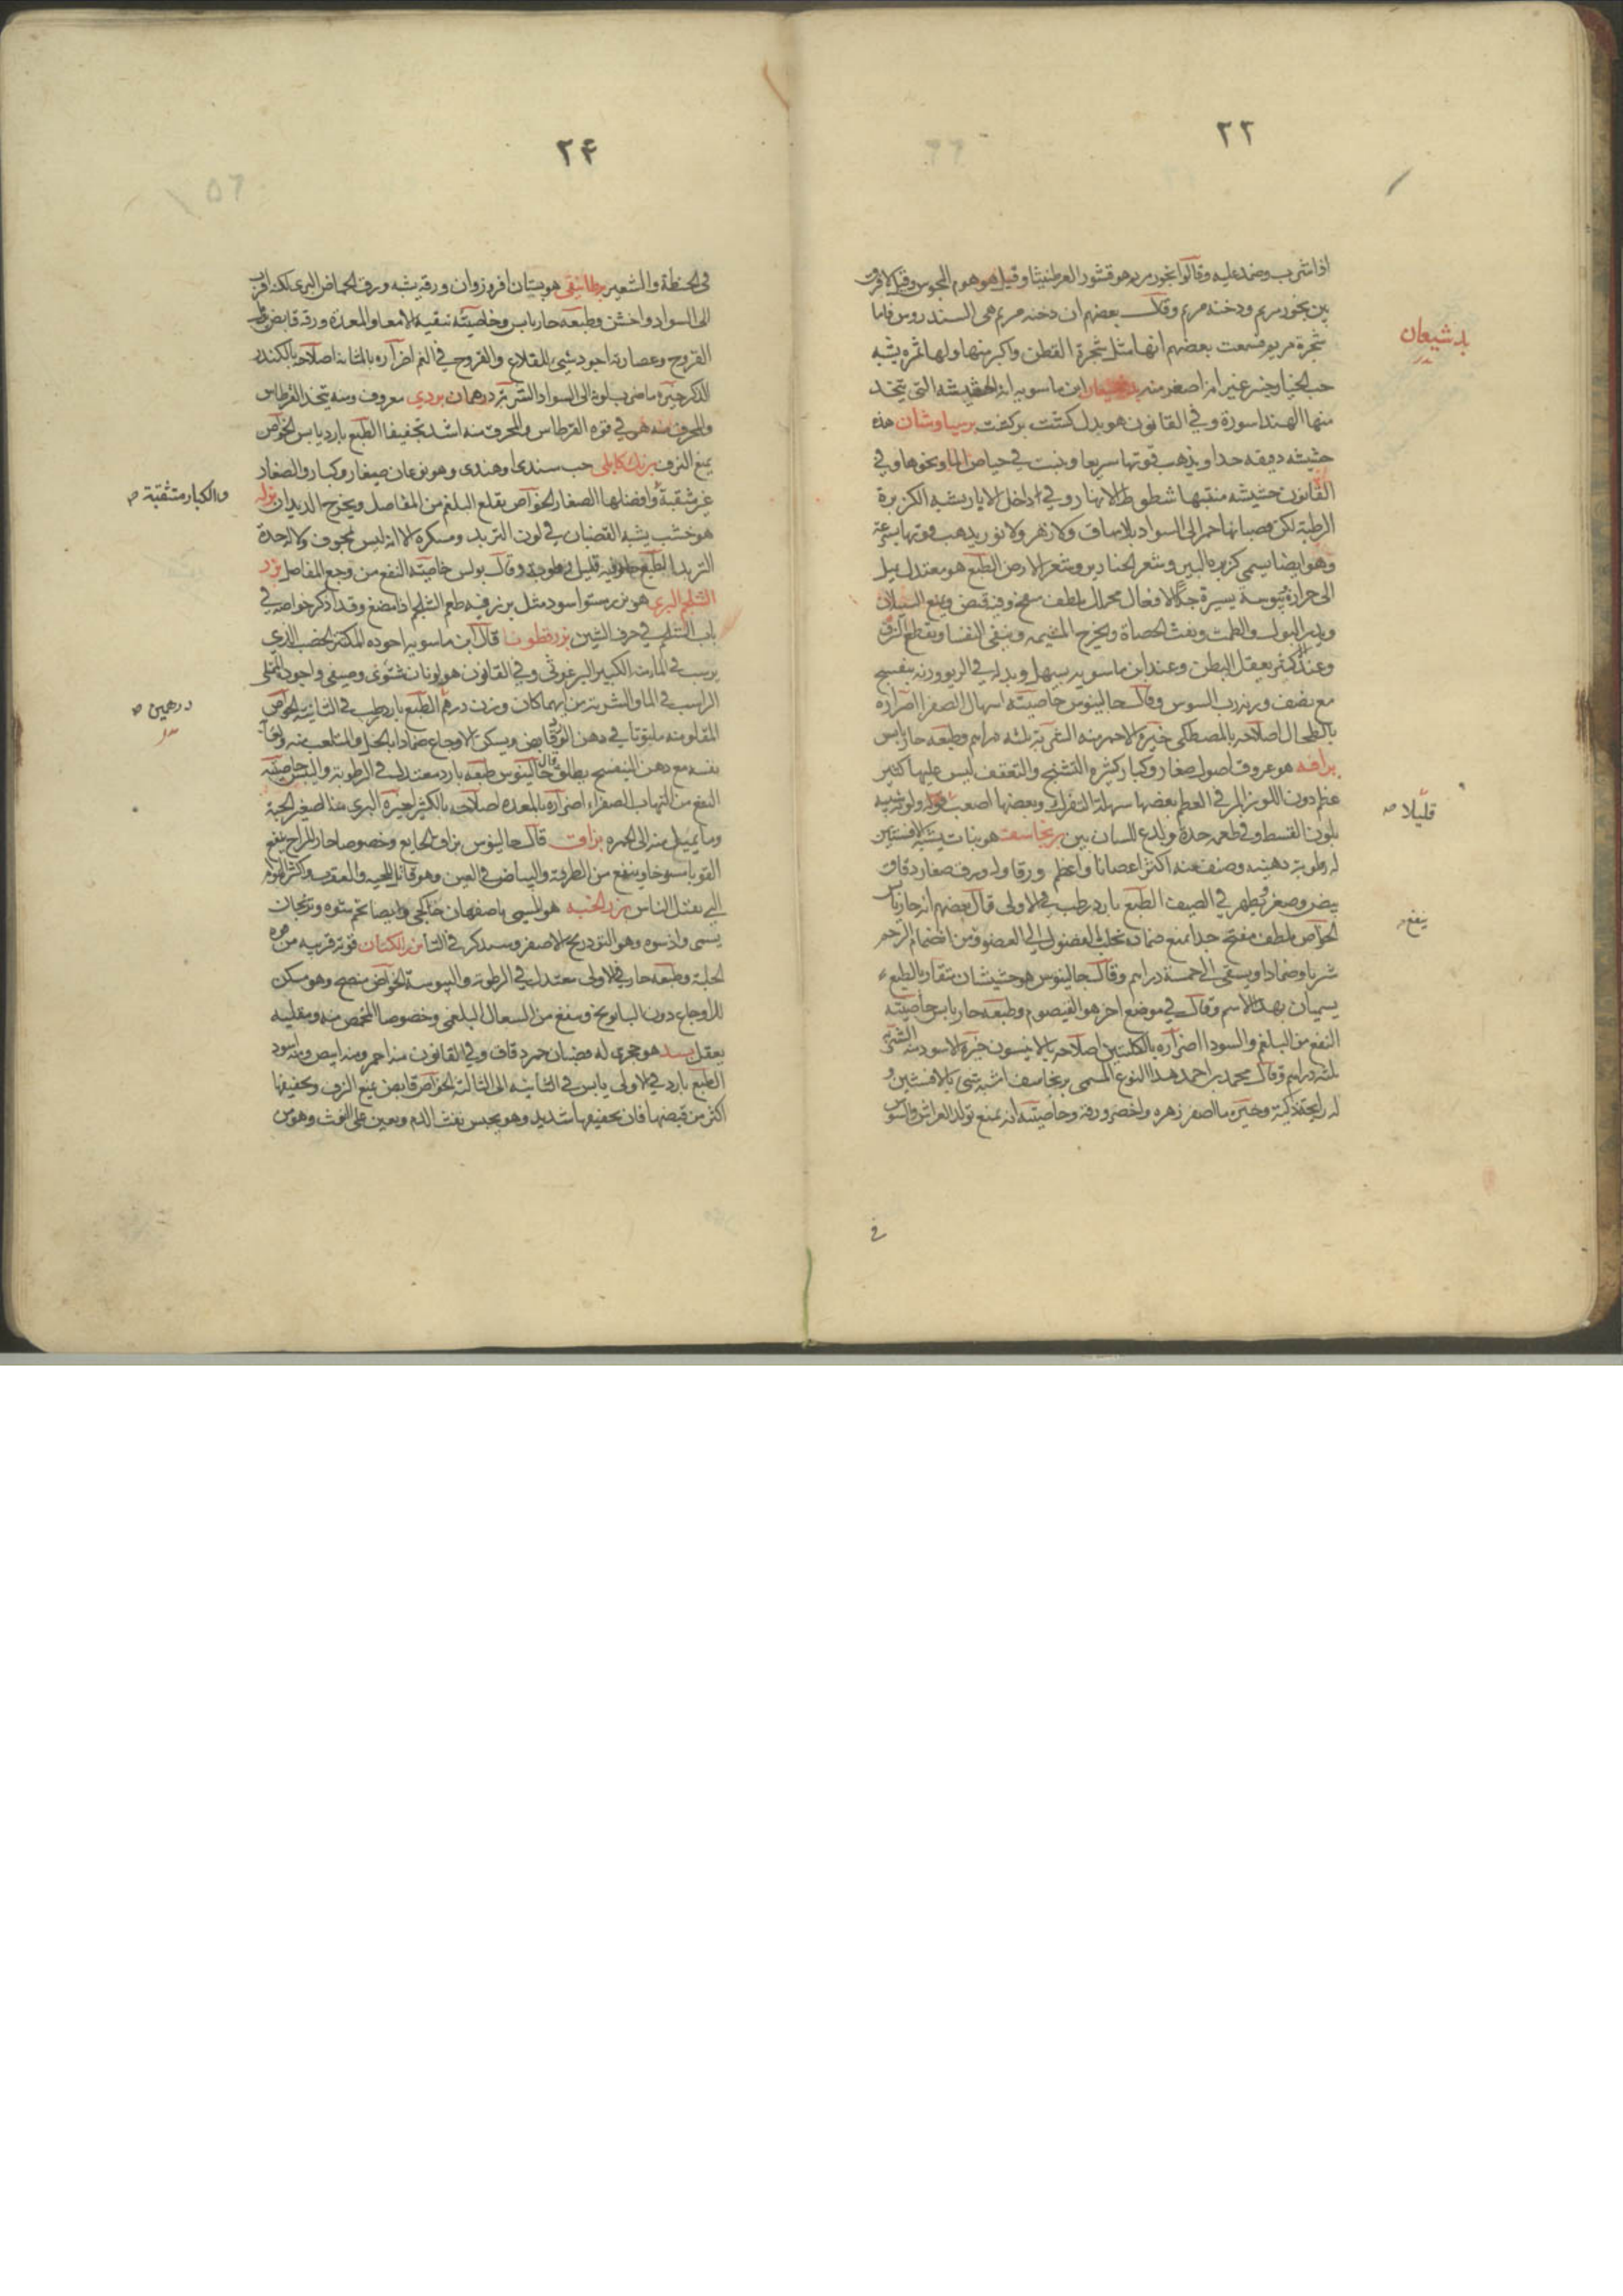 ٢٢
اذا شرب وضمد عليه وقالوا بخور مريم هو قشور العرطنيثا وقيل هو هوم المجوس وقيل لا فرق
بين بخور مريم ودخنه مريم وقال بعضهم ان دخنه مريم هى السندروس فاما
شجرة مريم فسمعت بعضهم انها مثل شجرة القطن واكبر منها ولها ثمره يشبه
حب الخيار وجنس غير انه اصغر منه ابن ماسويه انه الحشيشة التى يتخذ
بدشيعان
منها الهند اسورة وفي القانون هو بدل كشت بركشت برسياوشان هذه
حشيشه دقيقه جدا ويذهب قوتها سريعا وينبت في حياض الما ونحوها وفي
القانون حشيشه منبتها شطوط الانهار وفي داخل الابار يشبه الكزبرة
الرطبة لكن قضبانها حمر الى السواد بلا ساق ولا زهر ولا نور يذهب قوتها بسرعة
وهو ايضا يسمى كزبرة البير وشعر الخنازير وشعر الارض الطبع هو معتدل يميل
الى حرارة يبوسة يسيرة جدا الافعال محلل ملطف مفتح وفيه قبض ويمنع السيلان
ويدر البول والطمث ويفت الحصاة ويخرج المشيمه وينقى النفسا ويقطع النزف
وعند اكثرهم يعقل البطن وعند ابن ماسويه يسهل وبدله في الربو وزنه بنفسج
مع نصف وزنه رب السوس وقال جالينوس خاصيته اسهال الصفرا اضراره
بالطحال اصلاحه بالمصطكى خيره الاحمر منه الشربة ثلثه دراهم وطبعه حار يابس
هو عروق اصول صغار وكبار كثيرة التشنج والتعقف ليس عليها كثير
عظم دون اللوز المر في العظم بعضها سهلة التفرك وبعضها اصعب ولونه شبيه
قليلا صح
بلون القسط وفي طعمه حدة ويلدغ اللسان بين برنجاسف هو نبات يشبه الافسنتين
له رطوبة دهنيه وصنف منه اكثر اغصانا واعظم ورقا وله ورق صغار دقاق
بيض وصفر ويظهر في الصيف الطبع بارد رطب في الاولى قال بعضهم انه حار يابس
الخواص ملطف مفتح جدا يمنع ضماده تحلب الفضول الى العضو ومن انضمام الرحم
ينفع
شربا وضمادا ويسقى الى خمسة دراهم وقال جالينوس هو حشيشان متقاربا الطبع
يسميان بهذا الاسم وقال في موضع اخر هو القيصوم وطبعه حار يابس خاصيته
النفع من البلغم والسودا اضراره بالكليتين اصلاحه بالانيسون خيره الاسود منه الشربة
ثلثه دراهم وقال محمد بن احمد هذا النوع المسمى برنجاسف اشبه شى بالافسنتين و
له رايحة ذكية وخيره ما اصفر زهره واخضر ورقه وخاصيته انه يمنع
في
٢۴
في الحنطة والشعير برطانيقى هو بستان افروز وان ورقه يشبه ورق الحماض البرى لكنه اقرب
الى السواد واخشن وطبعه حار يابس وخاصيته تنقية الامعا والمعدة ورقه قابض
القروح وعصارته اجود شيى للقلاع والقروح في الفم اضراره بالمثانه اصلاحه بالكندر
الذكر خيره ما ضرب لونه الى السواد الشربة درهمان بردي معروف ومنه يتخذ القرطاس
والمحرق منه هو في قوة القرطاس والمحرق منه اشد تجفيفا الطبع بارد يابس الخواص
يمنع النزف برنك كابلى حب سندى وهندى وهو نوعان صغار وكبار والصغار
غير مثقبة وافضلها الصغار الخواص يقلع البلغم من المفاصل ويخرج الديدان
والكبار متثقبة صح
هو خشب يشبه القضبان في لون التربد ومسكره الا انه ليس بمجوف ولا له حدة
التربد الطبع حار فيه قليل رطوبة وقال بولس خاصيته النفع من وجع المفاصل بزر
الشلجم البرى هو بزر مستو اسود مثل بزر فيه طعم الشلجم اذا مضغ وقد اذكر خواصه في
باب الشلجم في حرف الشين بزرقطونا قال ابن ماسويه اجوده المكتنز الخصب الذي
يرسب في الماء الكبير البرغوثى وفي القانون هو لونان شتوى وصيفى واجوده الممتلى
الراسب في الما والشربة من ايهما كان وزن درهم الطبع بارد رطب في الثانيه الخواص
درهمين صح
المقلو منه ملتوتا في دهن الورد قابض ويسكن الاوجاع ضمادا بالخل والمتلعب منه
نفسه مع دهن البنفسج يطلق قال جالينوس طبعه بارد معتدل في الرطوبة واليبس خاصيته
النفع من التهاب الصفراء اضراره بالمعدة اصلاحه بالكثير خيره البرى منه الصغير الحبة
وما يميل منه الى الحمره بزاق قال جالينوس بزاق الجايع وخصوصا حار المزاج ينفع
القوبا مسوحا وينفع من الطرفة والبياض في العين وهو قاتل للحيه والعقرب واكثر الهوام
التي يقتل الناس بزر الخبه هو المسمى باصفهان خاكجى وايضا تخم
يسمى واذسوه وهو التودريج الاصفر وسيذكر في التا بزر الكتان قوته قريبه من قوة
الحلبة وطبعه حار في الاولى معتدل في الرطوبة واليبوسة الخواص منضج وهو مسكن
للاوجاع دون البابونج وينفع من السعال البلغمى وخصوصا المحمص منه ومقليه
يعقل بسد هو حجرى له قضبان حمر دقاق وفي القانون منه احمر ومنه ابيض ومنه اسود
الطبع بارد في الاولى يابس في الثانيه الى الثالثة الخواص قابض يمنع النزف وتجفيفها
اكثر من قبضها فان تجفيفها شديد وهو يحبس نفث الدم ويعين على النفث وهو من